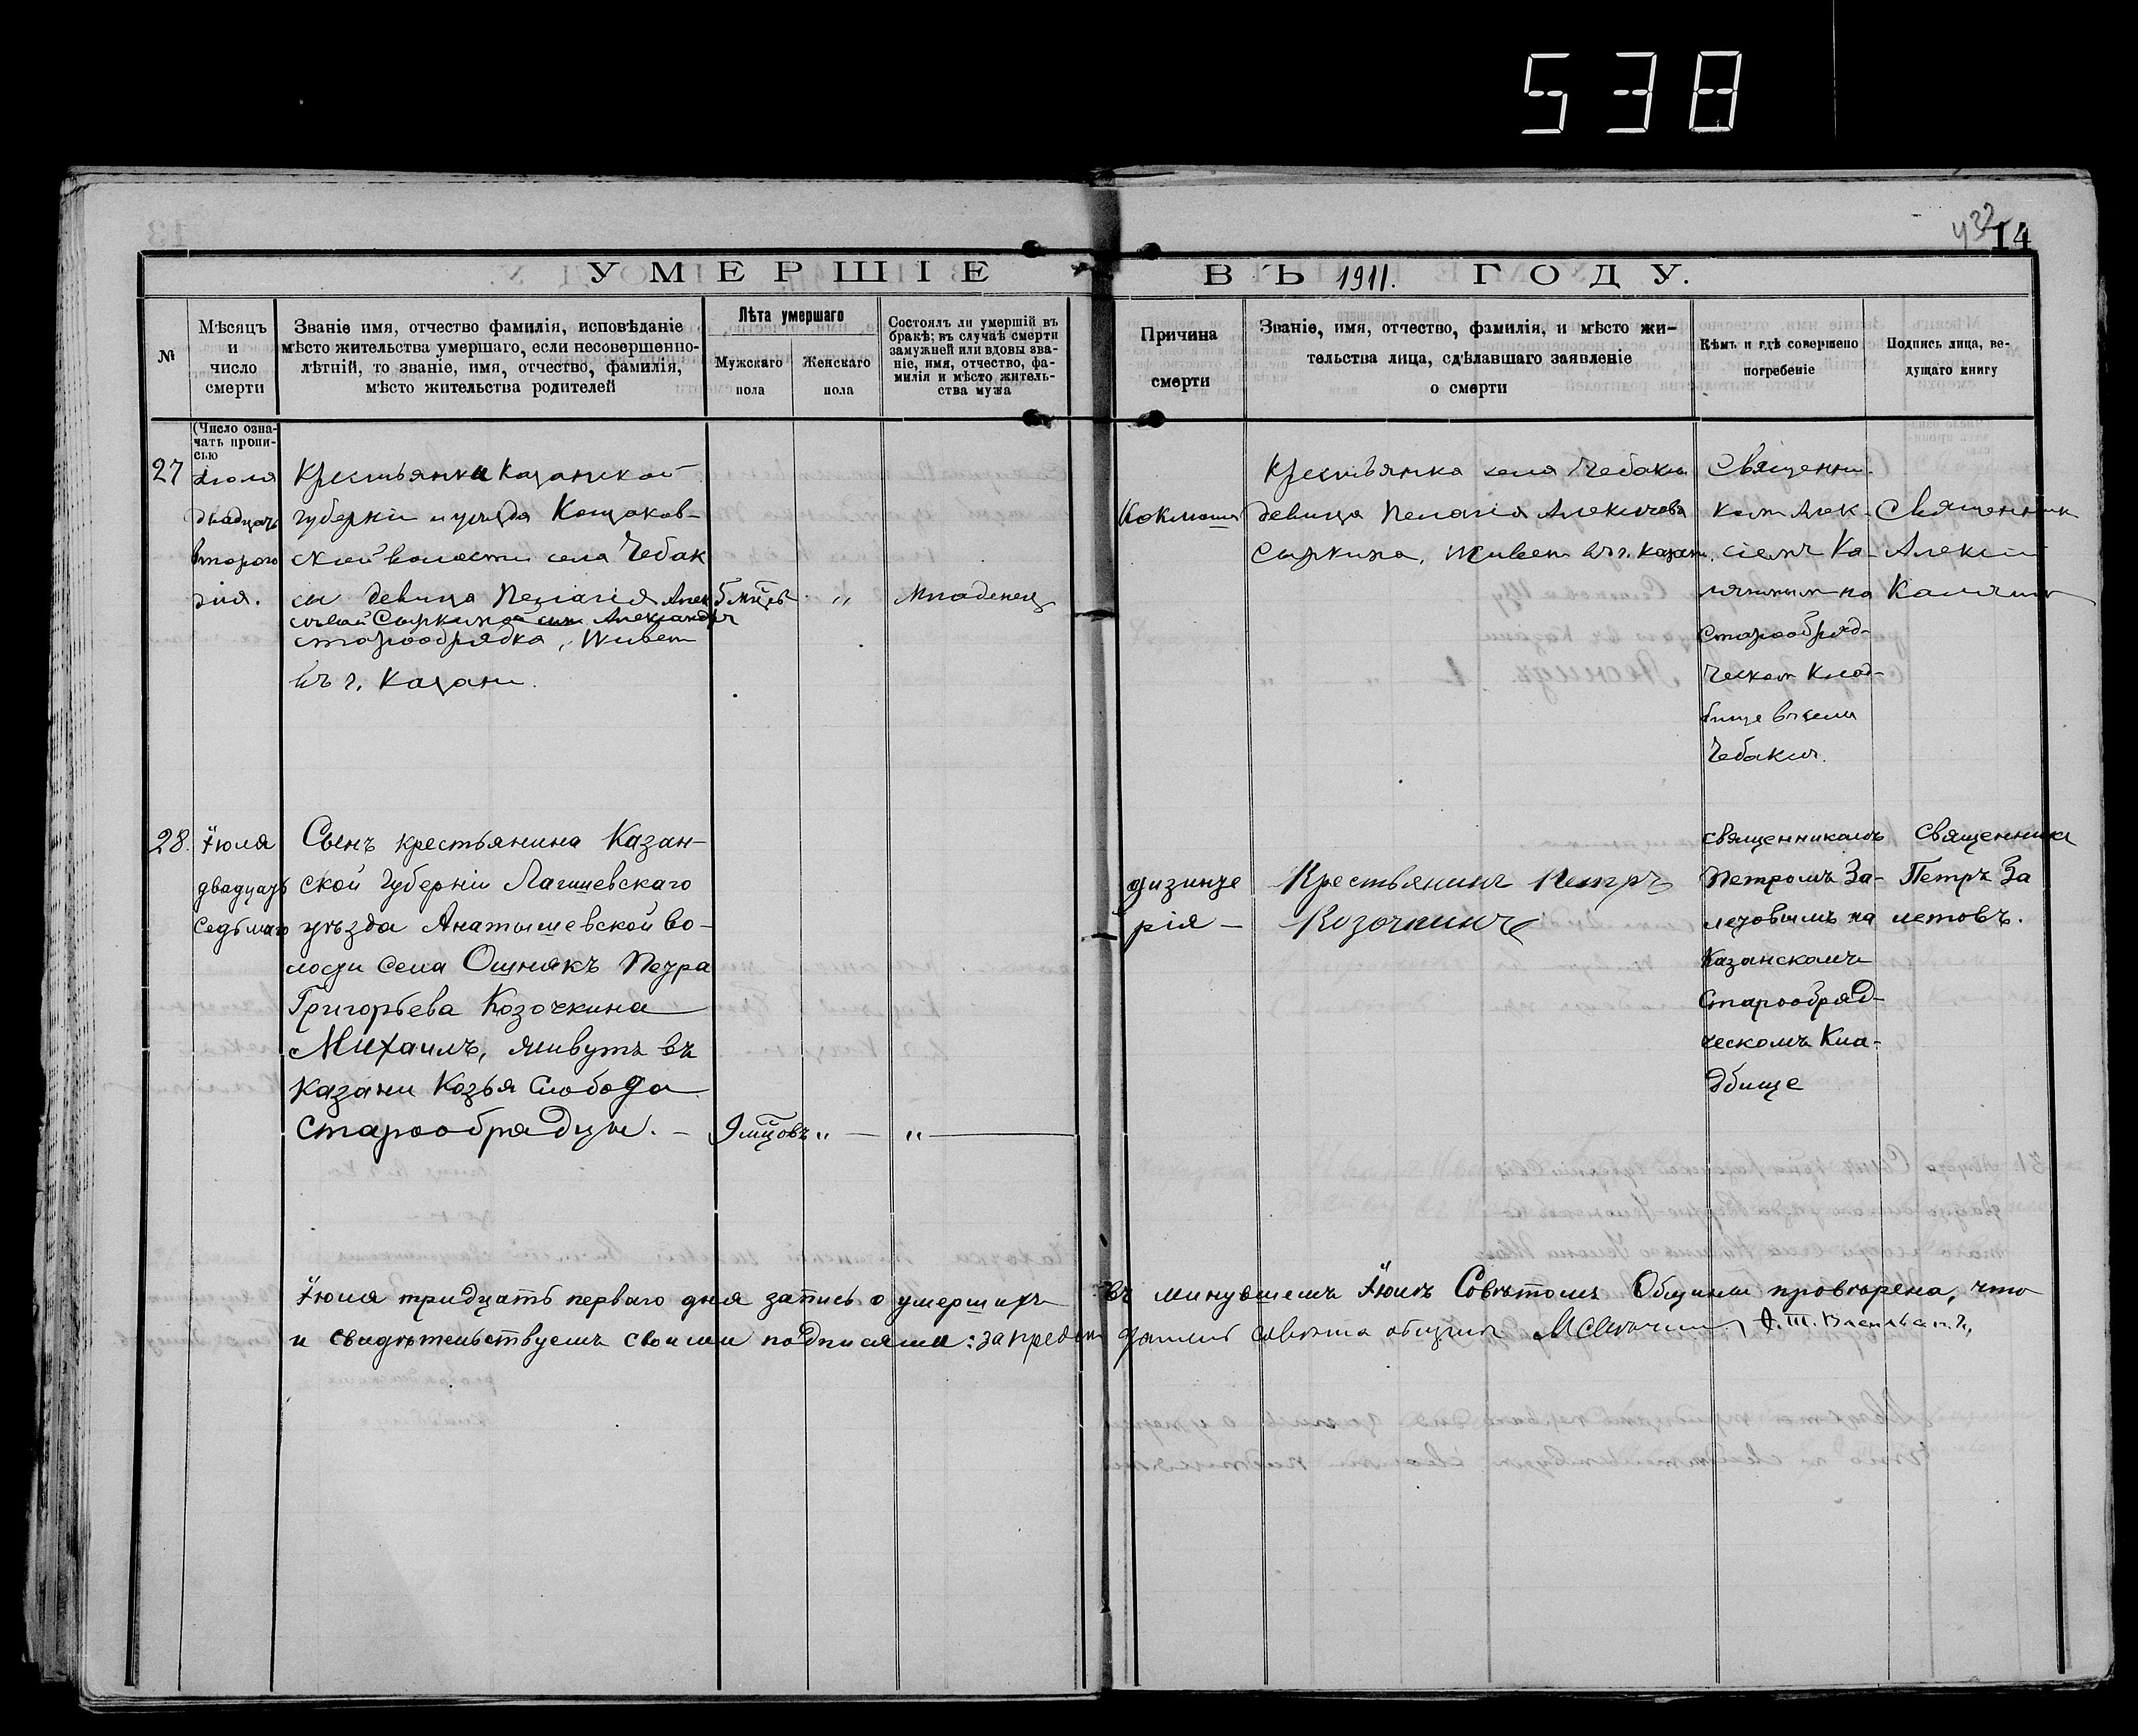 538
432
14
УМЕРШІЕ ВЪ 1911. ГОДУ.
№
Мѣсяцъ
и
число
смерти
Званіе имя, отчество фамилія, исповѣданіе
мѣсто жительства умершаго, если несовершенно-
лѣтній, то званіе, имя, отчество, фамилія,
мѣсто жительства родителей
Лѣта умершаго
Мужскаго
пола
Женскаго
пола
Состоялъ ли умершій въ
бракѣ; въ случаѣ смерти
замужней или вдовы зва-
ніе, имя, отчество, фа-
милія и мѣсто житель-
ства мужа
Причина
смерти
Званіе, имя, отчество, фамилія, и мѣсто жи-
тельства лица, сдѣлавшаго заявленіе
о смерти
Кѣмъ и гдѣ совершено
погребеніе
Подпись лица, ве-
дущаго книгу
(Число озна-
чать пропи-
сью
27
Іюля
двадцать
второго
дня.
Крестьянки Казанской
губерніи и уезда Кощаков-
ской волости села Чебак
сы девица Пелагія Алек
сѣевой Сыркиной сын Александръ
старообрядка, живет
въ г. Казани.
5 мцѣв
"
Младенец
Коклюш
Крестьянка села Чебакси
девица Пелагія Алексѣева
Сыркина, живет въ г. Казан.
Священни-
ком Алек-
сіемъ Ка-
лягиным на
старообряд-
ческом клад-
бище в селе
Чебакси.
Священник
Алексій
Калягин
28.
Іюля
двадцать
седьмаго
Сынъ крестьянина Казан-
ской Губерніи Лагишевскаго
уѣзда Анатышевской во-
лости Села Ошнякъ Петра
Григорьева Козочкина
Михаилъ, живутъ въ
Казани Козья Слобода
Старообрядцы. -
9 мцовъ " — " —
дизинте
рія -
Крестьянинъ Петръ
Козочкинъ
священникомъ
Петромъ За-
летовымъ на
Казанскомъ
Старообряд-
ческомъ Кла-
дбище
Священникъ
Петръ За
летовъ.
Іюля тридцать перваго дня запись о умершихъ въ минувшемъ Іюлѣ Совѣтомъ Общины провѣрена, что
и свидѣтельствуемъ своими подписями: за предсѣдателя совета общины